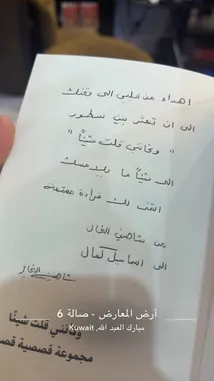 اهداء من قلبي الى وقتك
الى ان تعثر بين سطور
" وكأنني قلت شيئًا "
الى شيئًا ما يلامسك
اتمنى لك قراءة ممتعة
من شاهين الفال
الى اسماعيل كمال
أرض المعارض - صالة 6
مبارك العبد الله, Kuwait
وكأنني قلت شيئًا
مجموعة قصصية